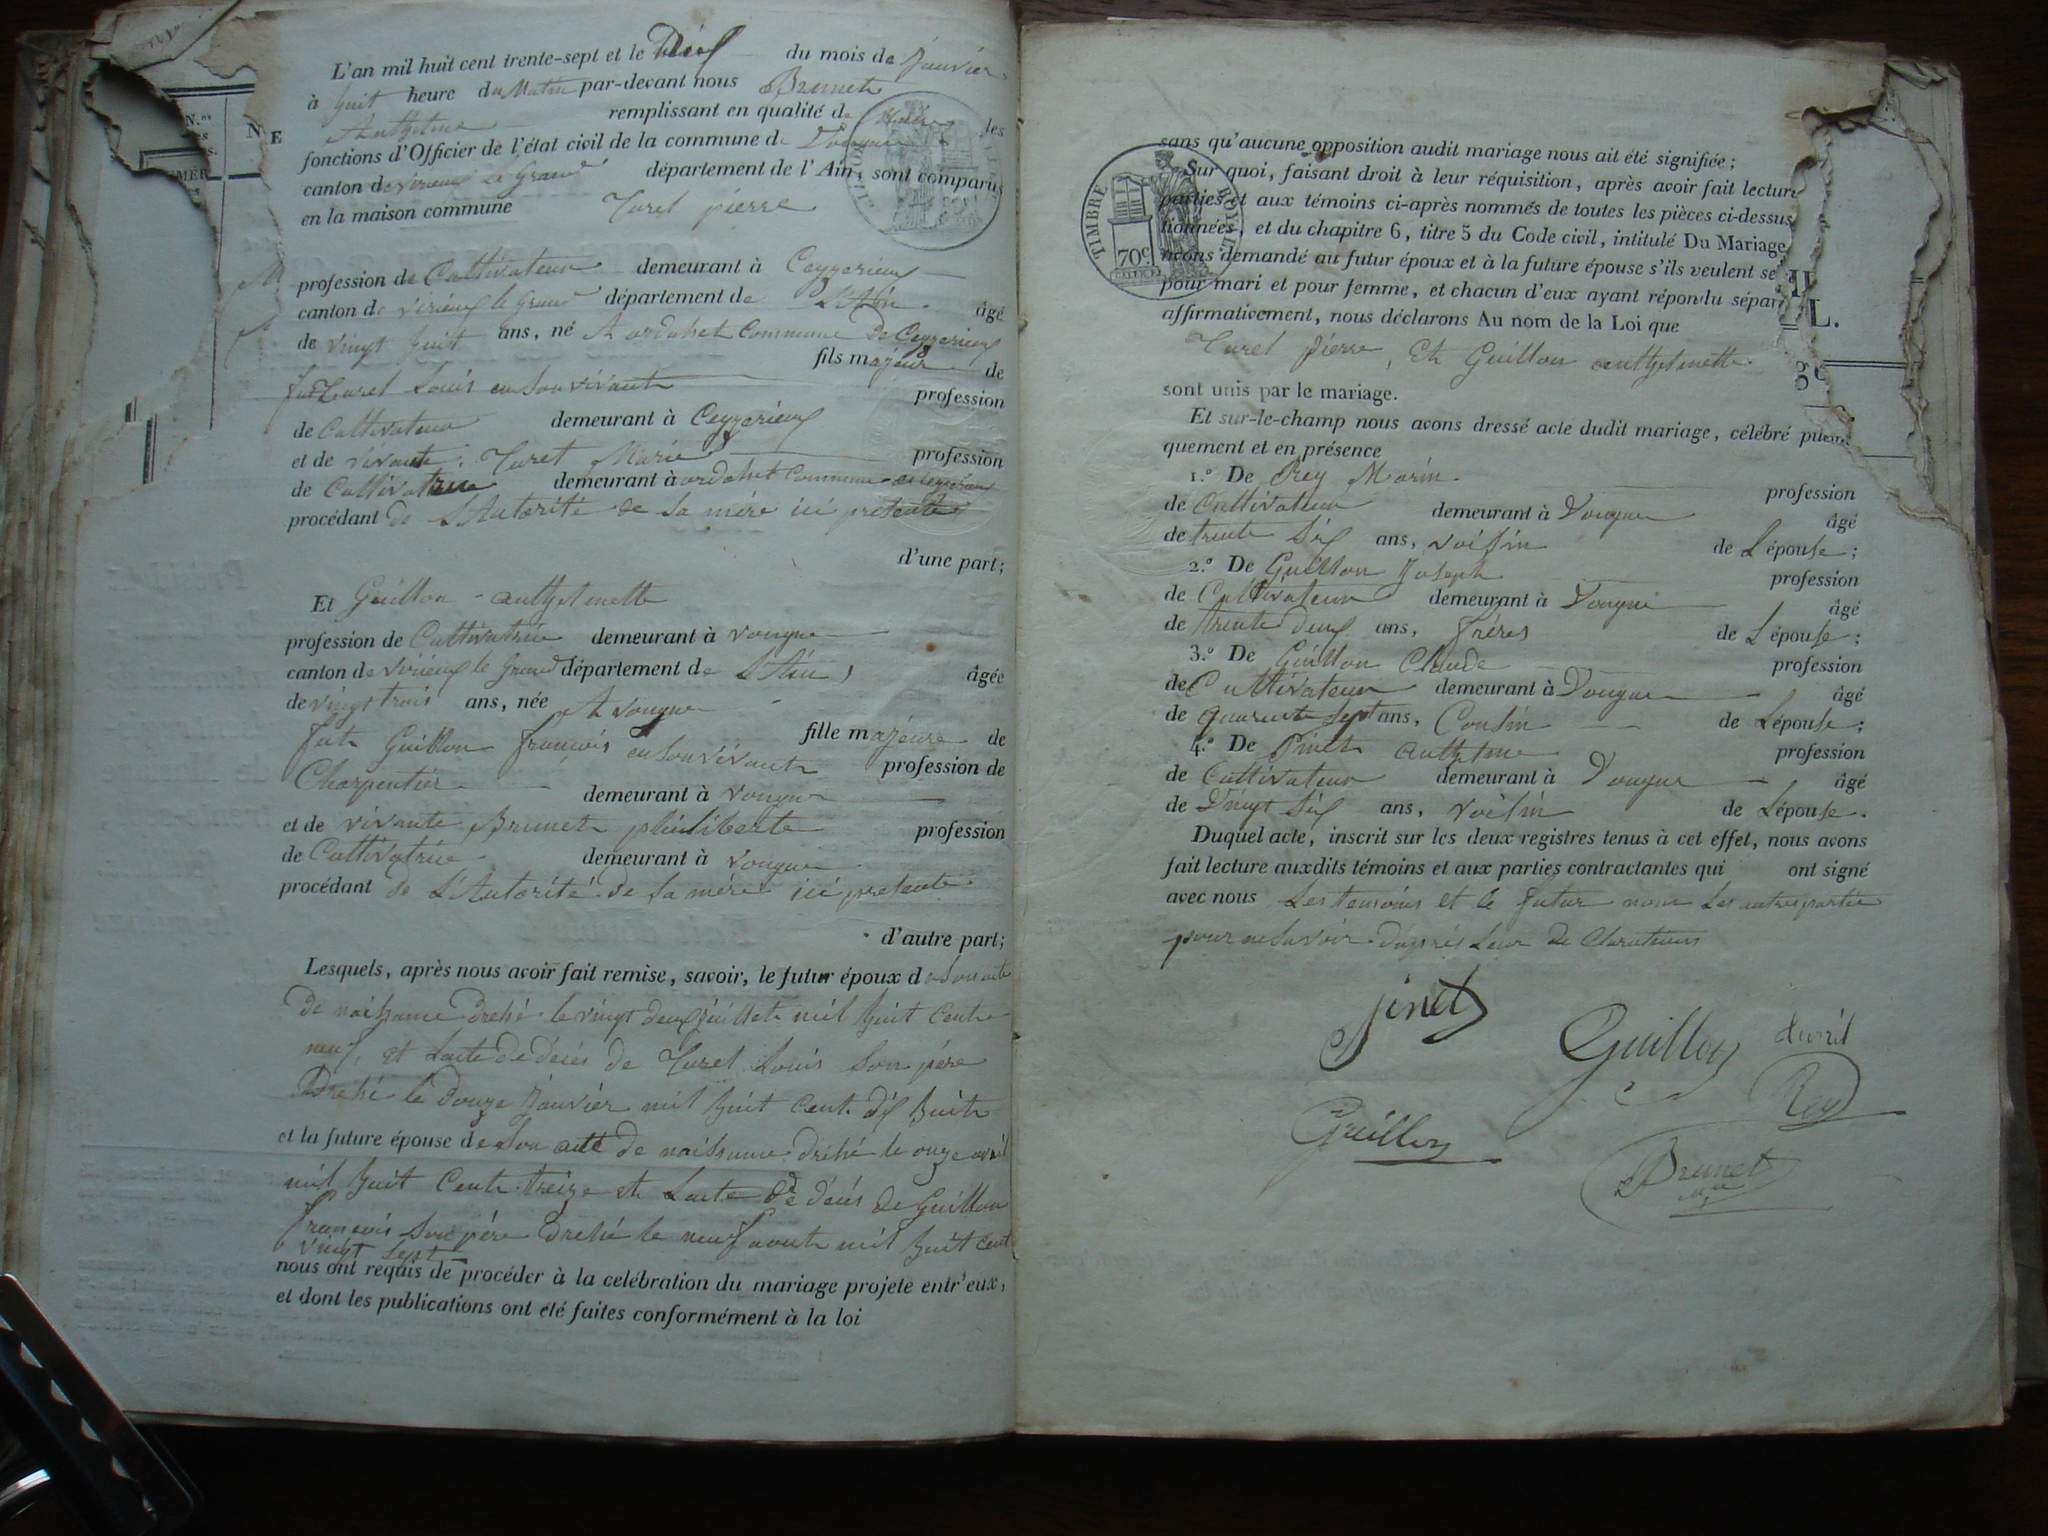 L'an mil huit cent trente-sept et le Dix du mois de Janvier
à huit heure du Matin par-devant nous Brunet
Anthelme remplissant en qualité de Maire les
fonctions d'Officier de l'état civil de la commune de Vongne
canton de virieux le Grand département de l'Ain, sont comparus
en la maison commune Turel pierre
profession de Cultivateur demeurant à Ceyzerieux
canton de virieux le Grand département de L'Ain. âgé
de vingt huit ans, né A ardohet Commune De Ceyzerieux
fils majeur de
fut Turel Louis en son vivant profession
de Cultivateur demeurant à Ceyzerieux
et de vivante Turet Marie profession
de Cultivatrice demeurant à ardohet Commune de Ceyzerieux
procédant de L'Autorité de sa mère ici présente
d'une part;
Et Guillon anthelmette
profession de Cultivatrice demeurant à vongne
canton de virieux le Grand département de L'Ain, âgée
de vingt trois ans, née A vongne
fille majeure de
fut Guillon françois en son vivant profession de
Charpentier demeurant à vongne
et de vivante Brunet philiberte profession
de Cultivatrice demeurant à vongne
procédant de L'Autorité de sa mère ici présente
d'autre part;
Lesquels, après nous avoir fait remise, savoir, le futur époux de son acte
de naissance drehé le vingt deux juillet mil huit cent
neuf, et Lacte de décés de Turel Louis son père
Drehé le douze Janvier mil huit cent dix huit
et la future épouse de son acte de naissance drehé le onze avril
mil huit cent treize et Lacte de décés de Guillon
françois son père Drehé le neuf aout mil huit cent
vingt sept
nous ont requis de procéder à la celébration du mariage projeté entr'eux,
et dont les publications ont été faites conformément à la loi
N.os
N E
sans qu'aucune opposition audit mariage nous ait été signifiée;
Sur quoi, faisant droit à leur réquisition, après avoir fait lecture
parties et aux témoins ci-après nommés de toutes les pièces ci-dessus
tionnées, et du chapitre 6, titre 5 du Code civil, intitulé Du Mariage
avons demandé au futur époux et à la future épouse s'ils veulent se
pour mari et pour femme, et chacun d'eux ayant répondu sépar
affirmativement, nous déclarons Au nom de la Loi que
Turel pierre, Et Guillon anthelmette
sont unis par le mariage.
Et sur-le-champ nous avons dressé acte dudit mariage, célébré publi
quement et en présence
1.º De Rey Marin profession
de Cultivateur demeurant à Vongne âgé
de trente six ans, voisin de L'épouse;
2.º De Guillon Joseph profession
de Cultivateur demeurant à Vongne âgé
de trente deux ans, frères de L'épouse;
3.º De Guillon Claude profession
de Cultivateur demeurant à Vongne âgé
de quarente sept ans, Cousin de L'épouse;
4.º De Pinet anthelme profession
de Cultivateur demeurant à Vongne âgé
de Vingt six ans, voisin de L'épouse.
Duquel acte, inscrit sur les deux registres tenus à cet effet, nous avons
fait lecture auxdits témoins et aux parties contractantes qui ont signé
avec nous Les temoins et le futur non Les autres partie
pour ne savoir d'après Leur de Claration
TIMBRE ROYAL
70c
pinet
Guillon
Guillon
Rey
Brunet